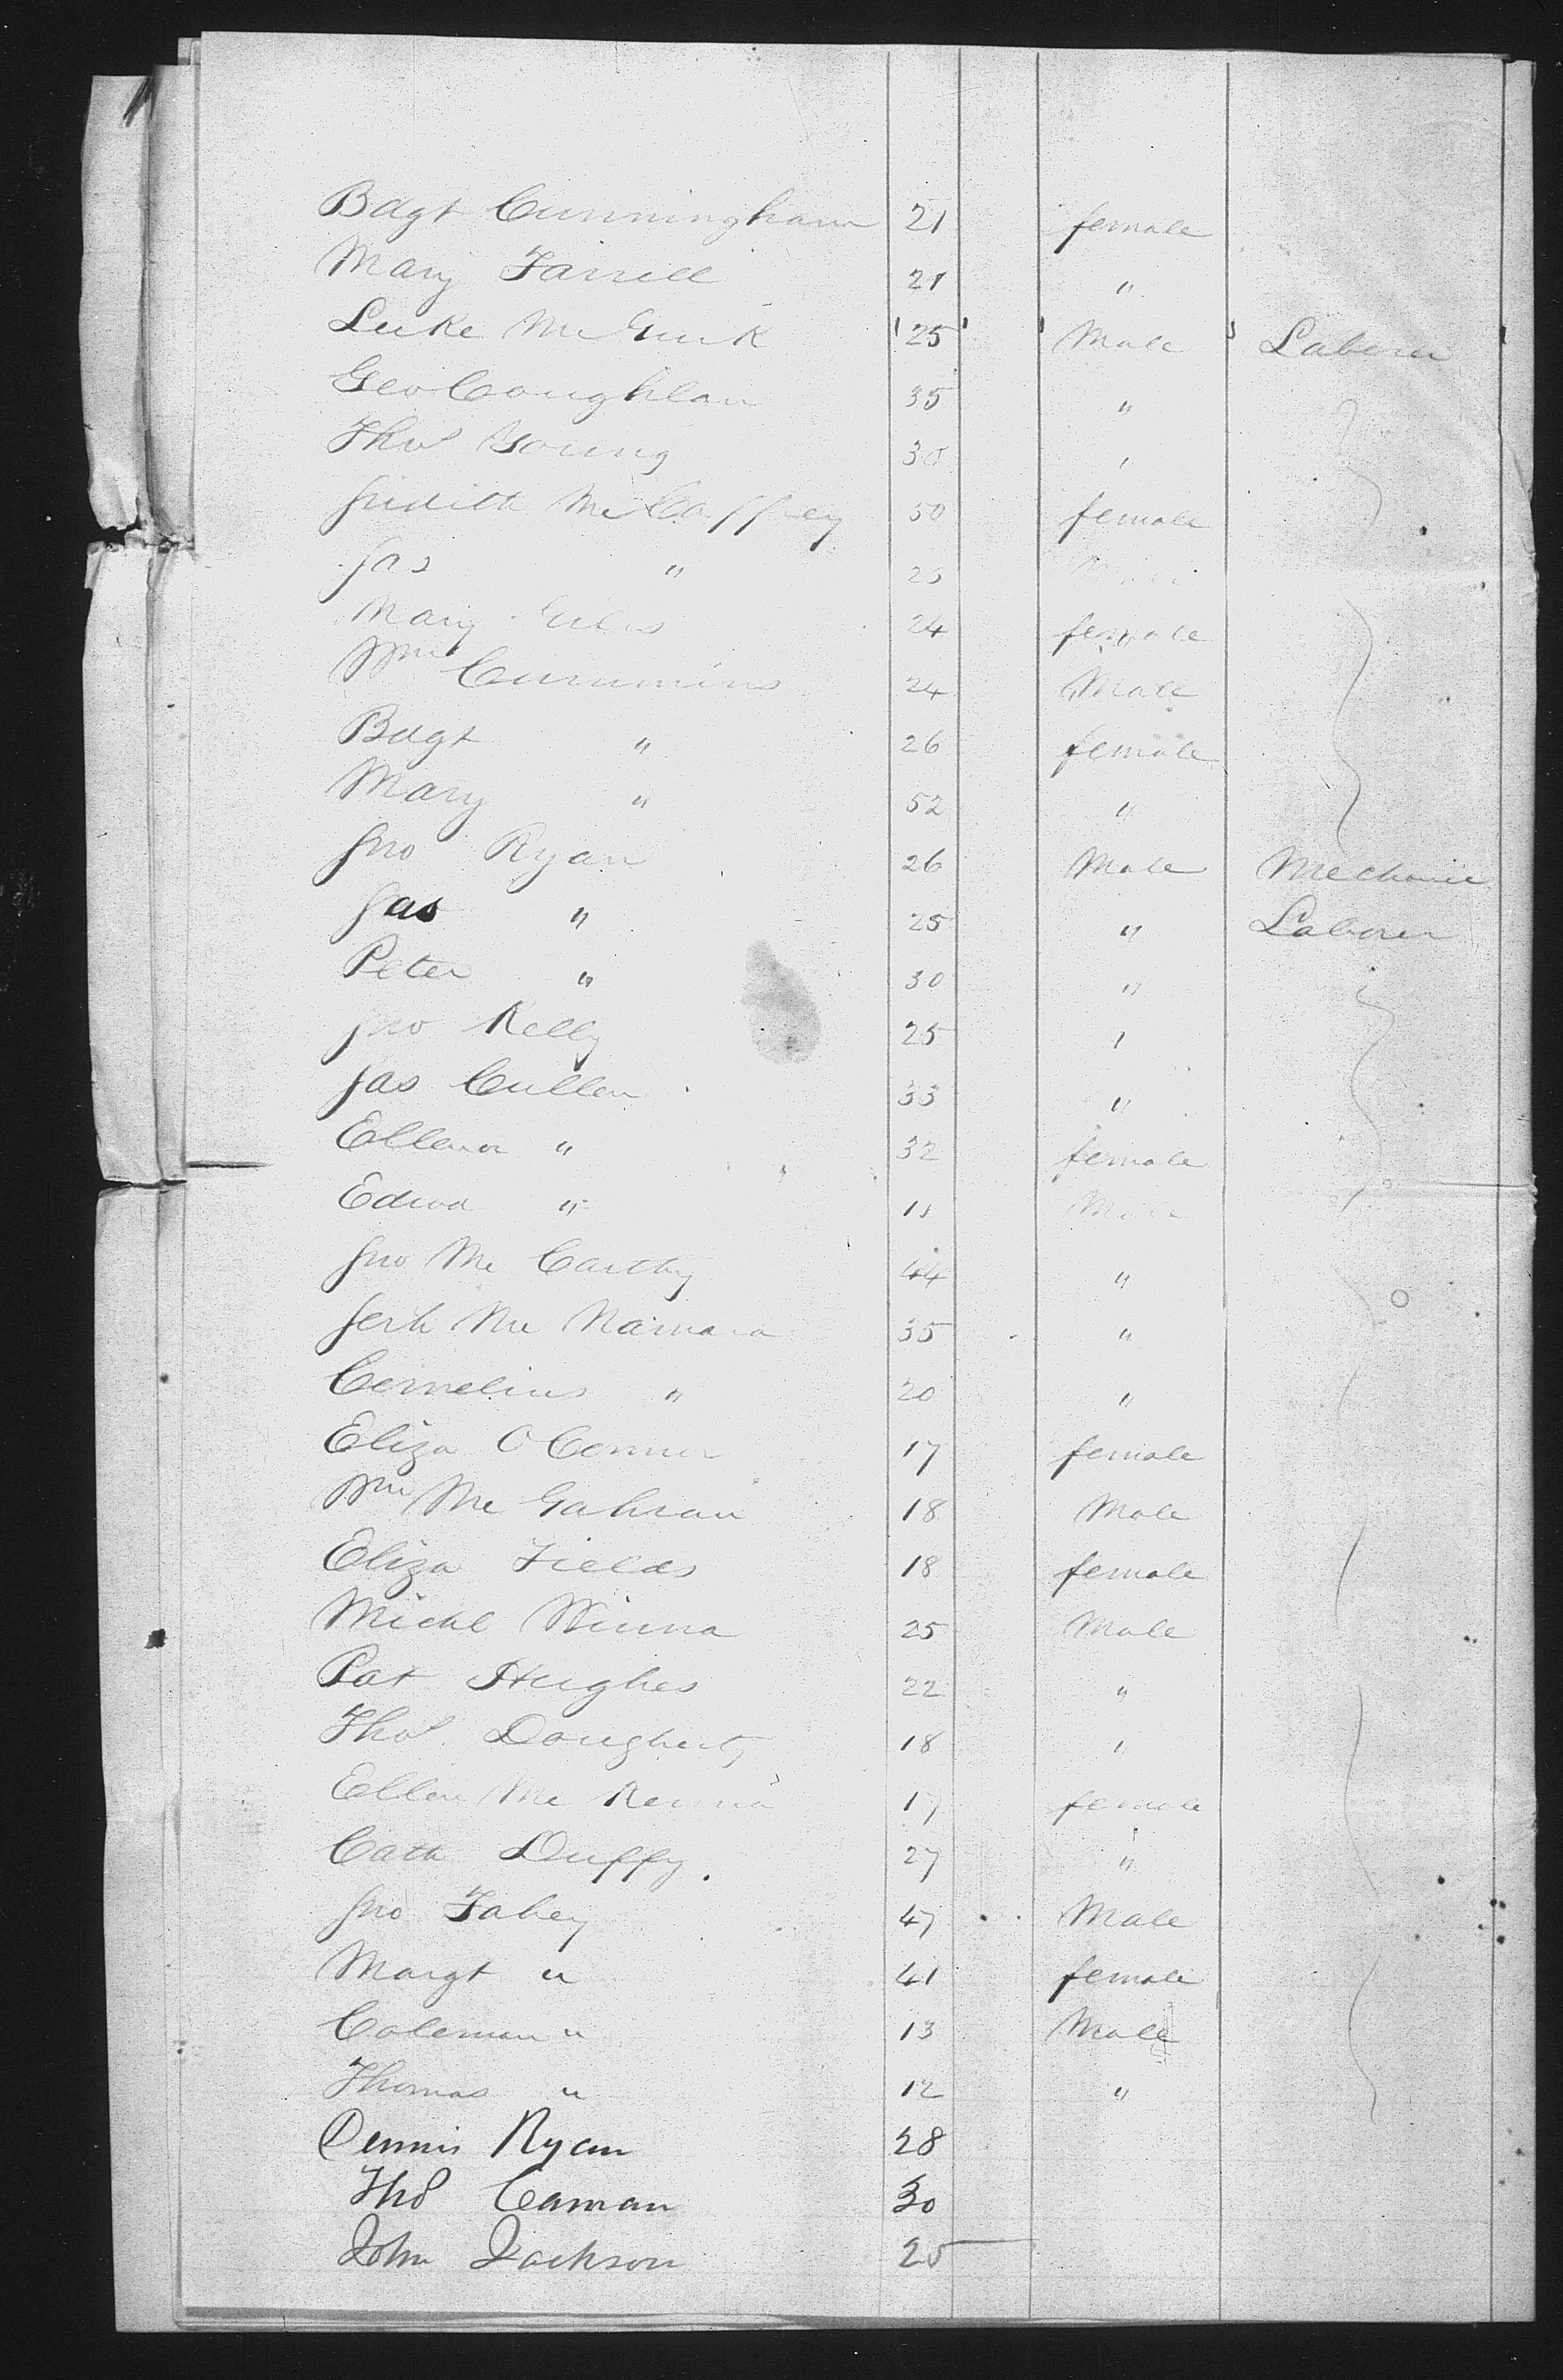 Bdgt Cunningham 21 female
Mary Farrell 21 "
Luke Mc Gurk 25 Male Laborer
Geo Coughlan 35 " 
Thos Young 30 "
Judith Mc Caffrey 50 female
Jas " 25 Male
Mary 24 female
Wm Cummins 24 Male
Bdgt " 26 female
Mary " 52 "
Jno Ryan 26 Male Mechanic
Jas " 25 " Laborer
Peter " 30 "
Jno Kelly 25 "
Jas Cullen 33 "
Ellena " 32 female
Edwd " 11 Male
Jno Mc Carthy 44 "
Jerh Mc Namara 35 "
Cornelius " 20 "
Eliza O Connor 17 female
Wm Mc Gahran 18 Male
Eliza Fields 18 female
Michl Winna 25 Male
Pat Hughes 22 "
Thos Dougherty 18 "
Ellen Mc Kenna 17 female
Cath Duffy. 27 "
Jno Fahey 47 Male
Margt " 41 female
Coleman " 13 Male
Thomas " 12 "
Dennis Ryan 28
Thos Caman 30
John Jackson 25